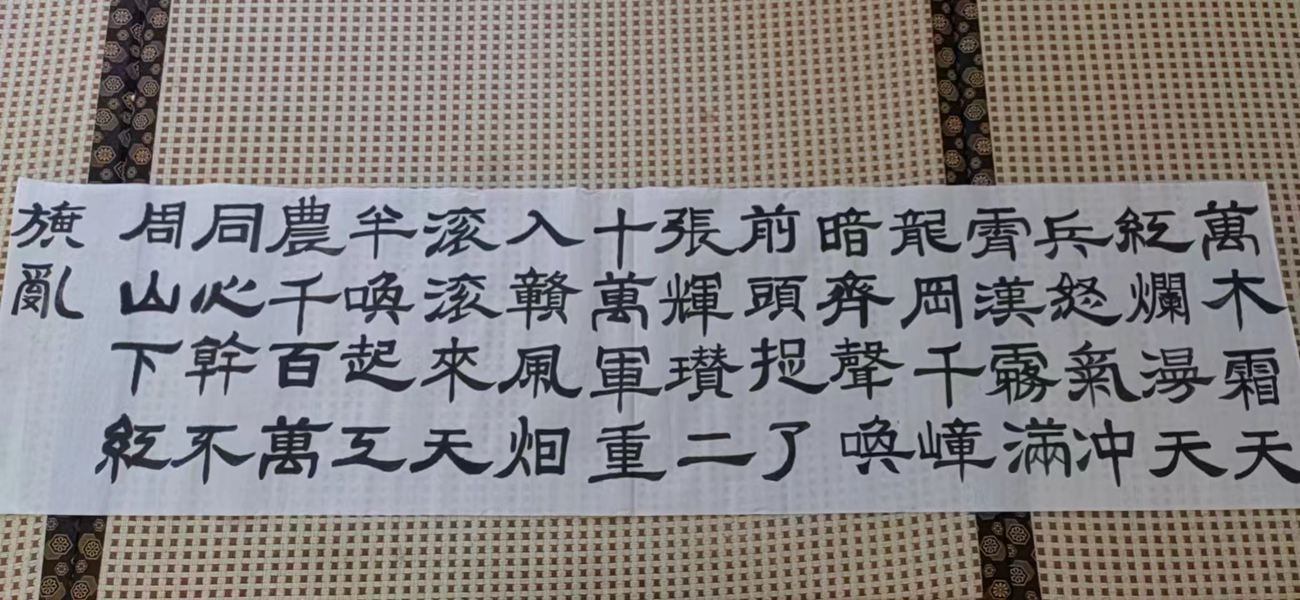 萬木霜天
紅爛漫天
兵怒氣冲
霄漢霧滿
龍岡千嶂
暗齊聲喚
前頭捉了
張輝瓚二
十萬軍重
入贛風烟
滚滚來天
半喚起工
農千百萬
同心幹不
周山下紅
旗亂